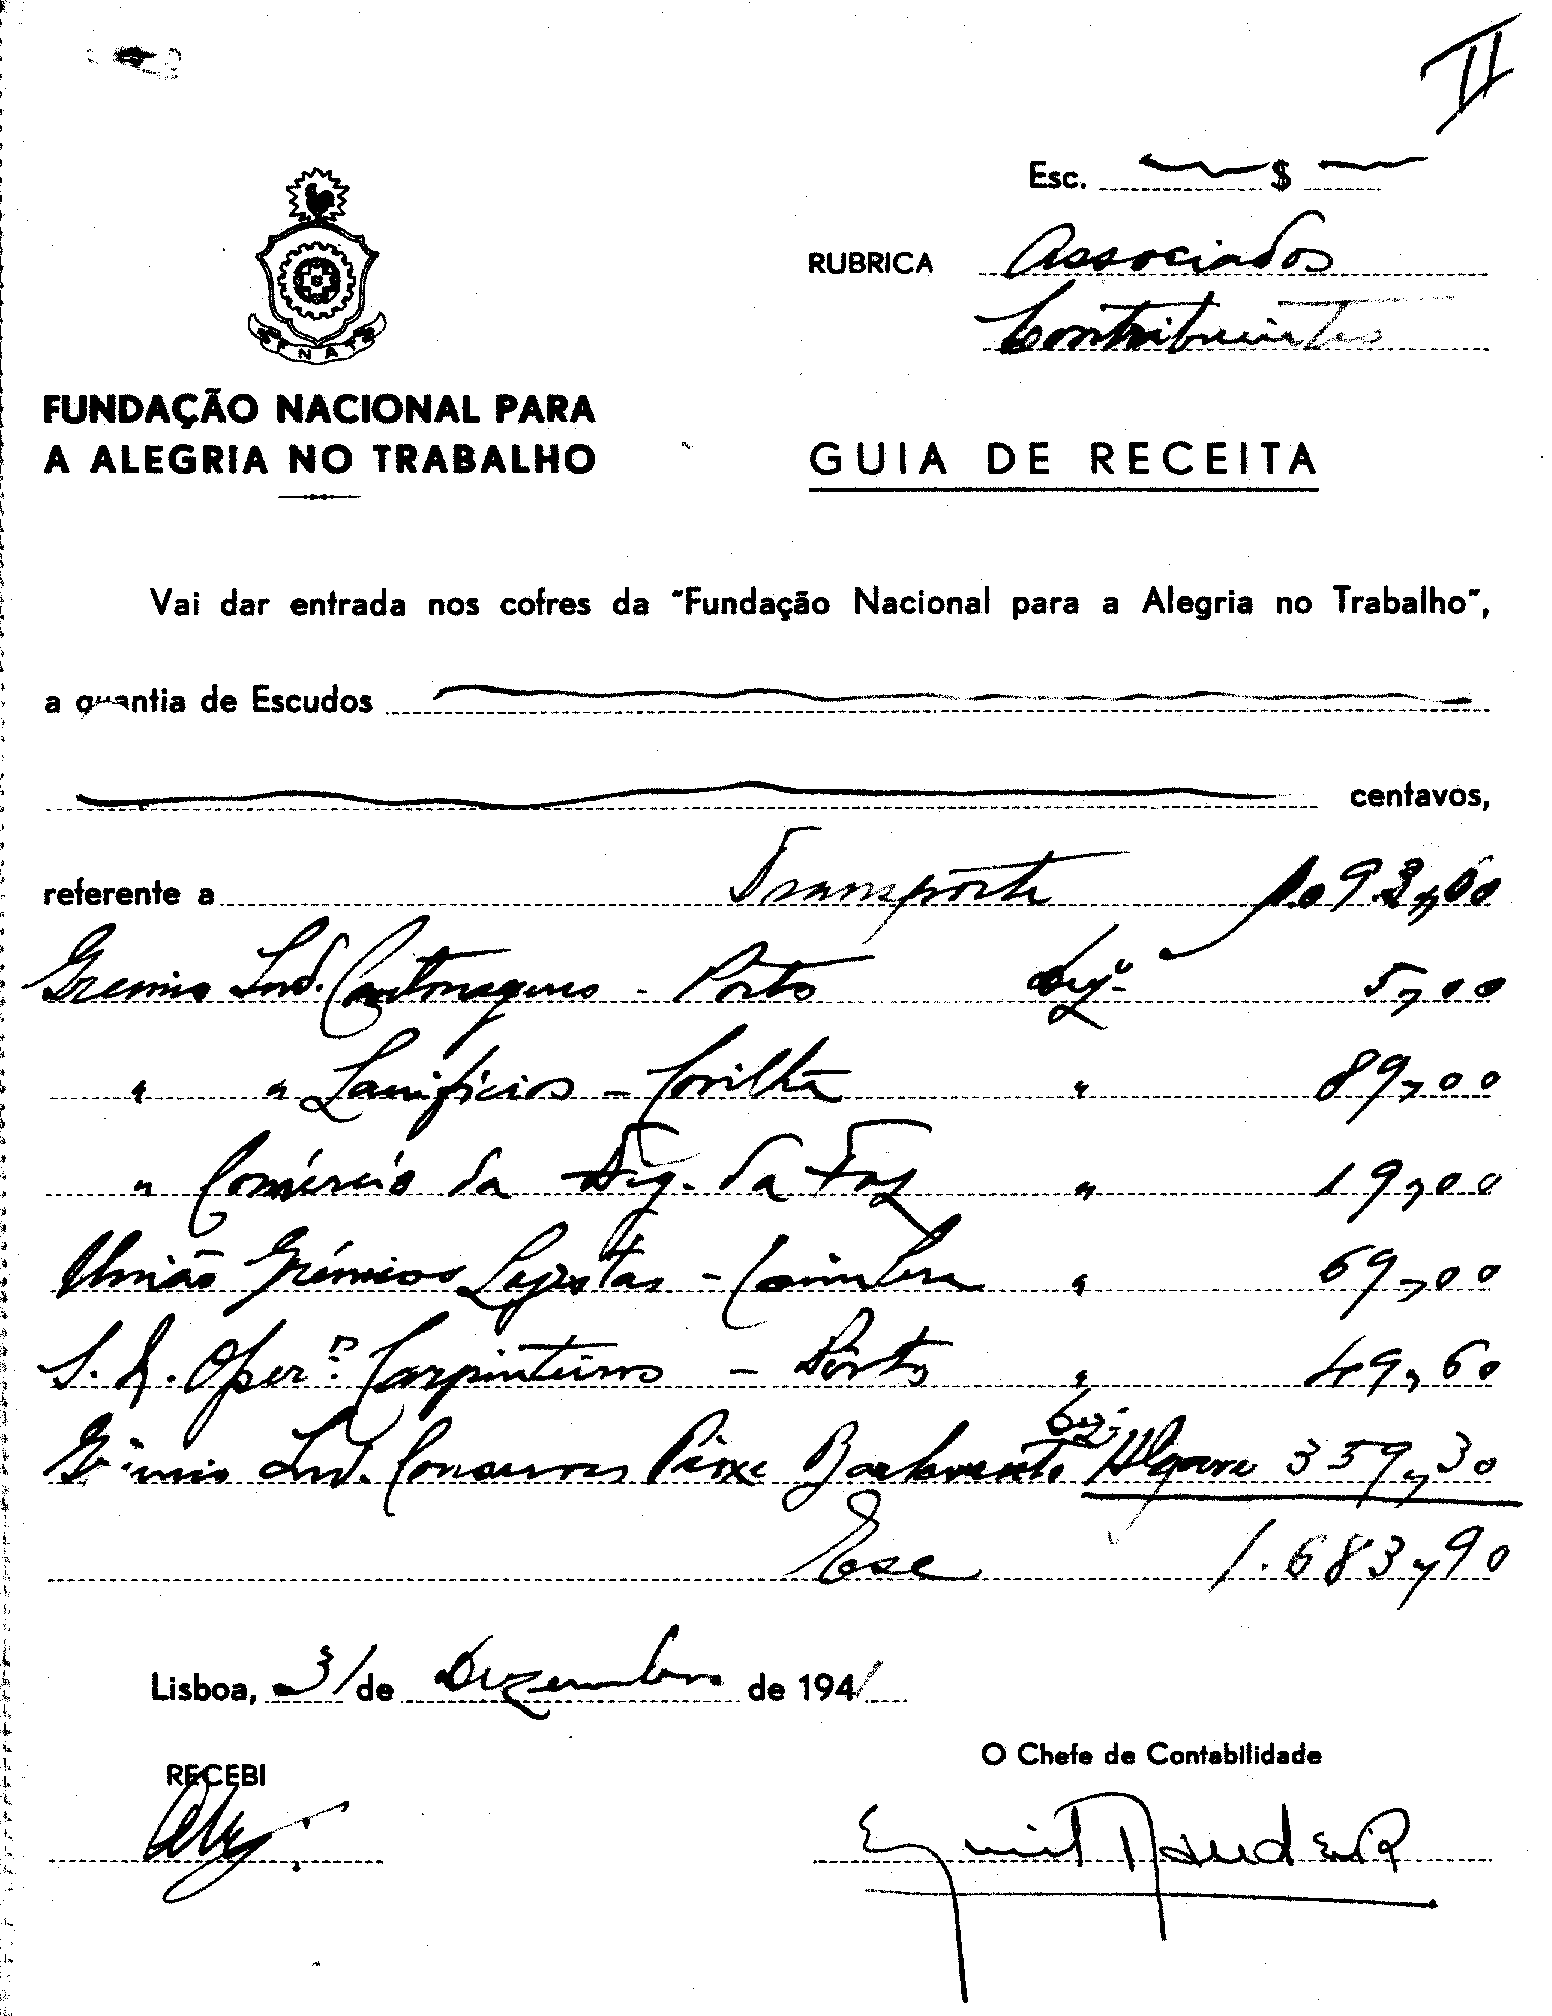 II
Esc. $
RUBRICA Associados
Contribuintes
FNAT
FUNDAÇÃO NACIONAL PARA
A ALEGRIA NO TRABALHO
GUIA DE RECEITA
Vai dar entrada nos cofres da "Fundação Nacional para a Alegria no Trabalho",
a quantia de Escudos
centavos,
referente a Transporte 1.093,00
Gremio Ind. Cartonagens - Porto 5,00
" " Lanifícios - Covilhã " 89,00
" Comércio da Fig. da Foz " 19,00
União Grémios Lojistas - Coimbra " 69,00
S. N. Oper.os Carpinteiros - Porto " 49,60
Grémio Ind. Conservas Peixe Barlavento Algarve 359,30
Esc 1.683,90
Lisboa, 31 de Dezembro de 1941
RECEBI
O Chefe de Contabilidade